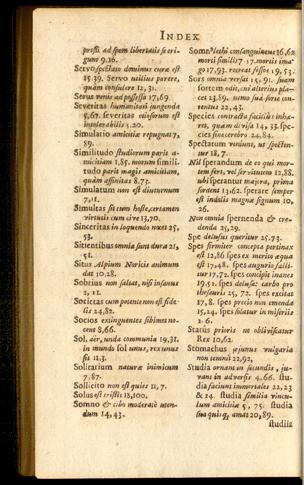 INDEX
presti ad spem libertatis se eri-
gunt 9.26.
Servo spectato dominus cura est
15.39. Servo utilius parere,
quàm consulere 12, 31.
Serus venit ad possessa 17,69.
Severitas humanitati jungenda
5,67. severitas eiusorum est
intolerabilis 5.20.
Simulatio amicitiæ repugnat 7,
89.
Similitudo studiorum parit a-
micitiam 1,85. morum simili-
tudo parit magis amicitiam,
quàm affinitas 8.73.
Simulatum non est diuturnum
7,11.
Simultas sit cum hoste, certamen
virtutis cum cive 13,70.
Sinceritas in loquendo 25,
53.
Sitientibus omnia sunt dura 21,
51.
Situs Alpium Noricis animum
dat 10.28.
Sobrius non saltat, nisi insanus
2, 11.
Societas cum potente non est fide-
lis 24,82.
Socios extinguentes sibimet no-
cent 8,66.
Sol, aër, unda communia 19,31.
in mundo sol unus, rex unus
sit 11.3.
Solitarium natura inimicum
7.87.
Sollicito non est quies 11, 7.
Solus est tristis 18,100.
Somno & cibo moderatè uten-
dum 14, 43.
Somno lethi consanguineus 16,62
morti similis 17 17. mortis ima-
go 17,93. recreat fessos 19, 53.
Sors omnia versat 15, 91. suam
sortem odit, cui alterius pla-
cet 23.89. nemo suâ sorte con-
tentus 22,43.
Species contracta faciliùs inhæ-
ret, quàm divisa 14, 33. spe-
cies sine cerebro 24,84.
Spectatum veniunt, ut specten-
tur 18, 7.
Nil sperandum de eo qui mor-
tem fert, vel servitutem 12,88.
ubi speratur majora, prima
sordent 13,62. sperare semper
est indolis magna signum 10,
26.
Non omnia spernenda & cre-
denda 25, 29.
Spe delusus queritur 25.73.
Spes firmiter concepta pertinax
est 12,86 spes ex merito aqua
est 17,48. spes auguria falli-
tur 17,72. spes concipit inanes
19.51. spes delusæ: carbo pro
thesauris 25, 72. spes excitas
17,8. spes precio non emenda
15,24. spes solatur in miseriis
2 6.
Status prioris ne obliviscatur
Rex 10,62.
Stomachus jejunus vulgaria
non temnit 22,92.
Studia ornant in secundis, ju-
vant in adversis 4,66. stu-
dia faciunt immortales 22,23
& 24. studia similia vincu-
lum amicitiæ 5, 75. studia
sua quisq; amat 20,89.
studiis